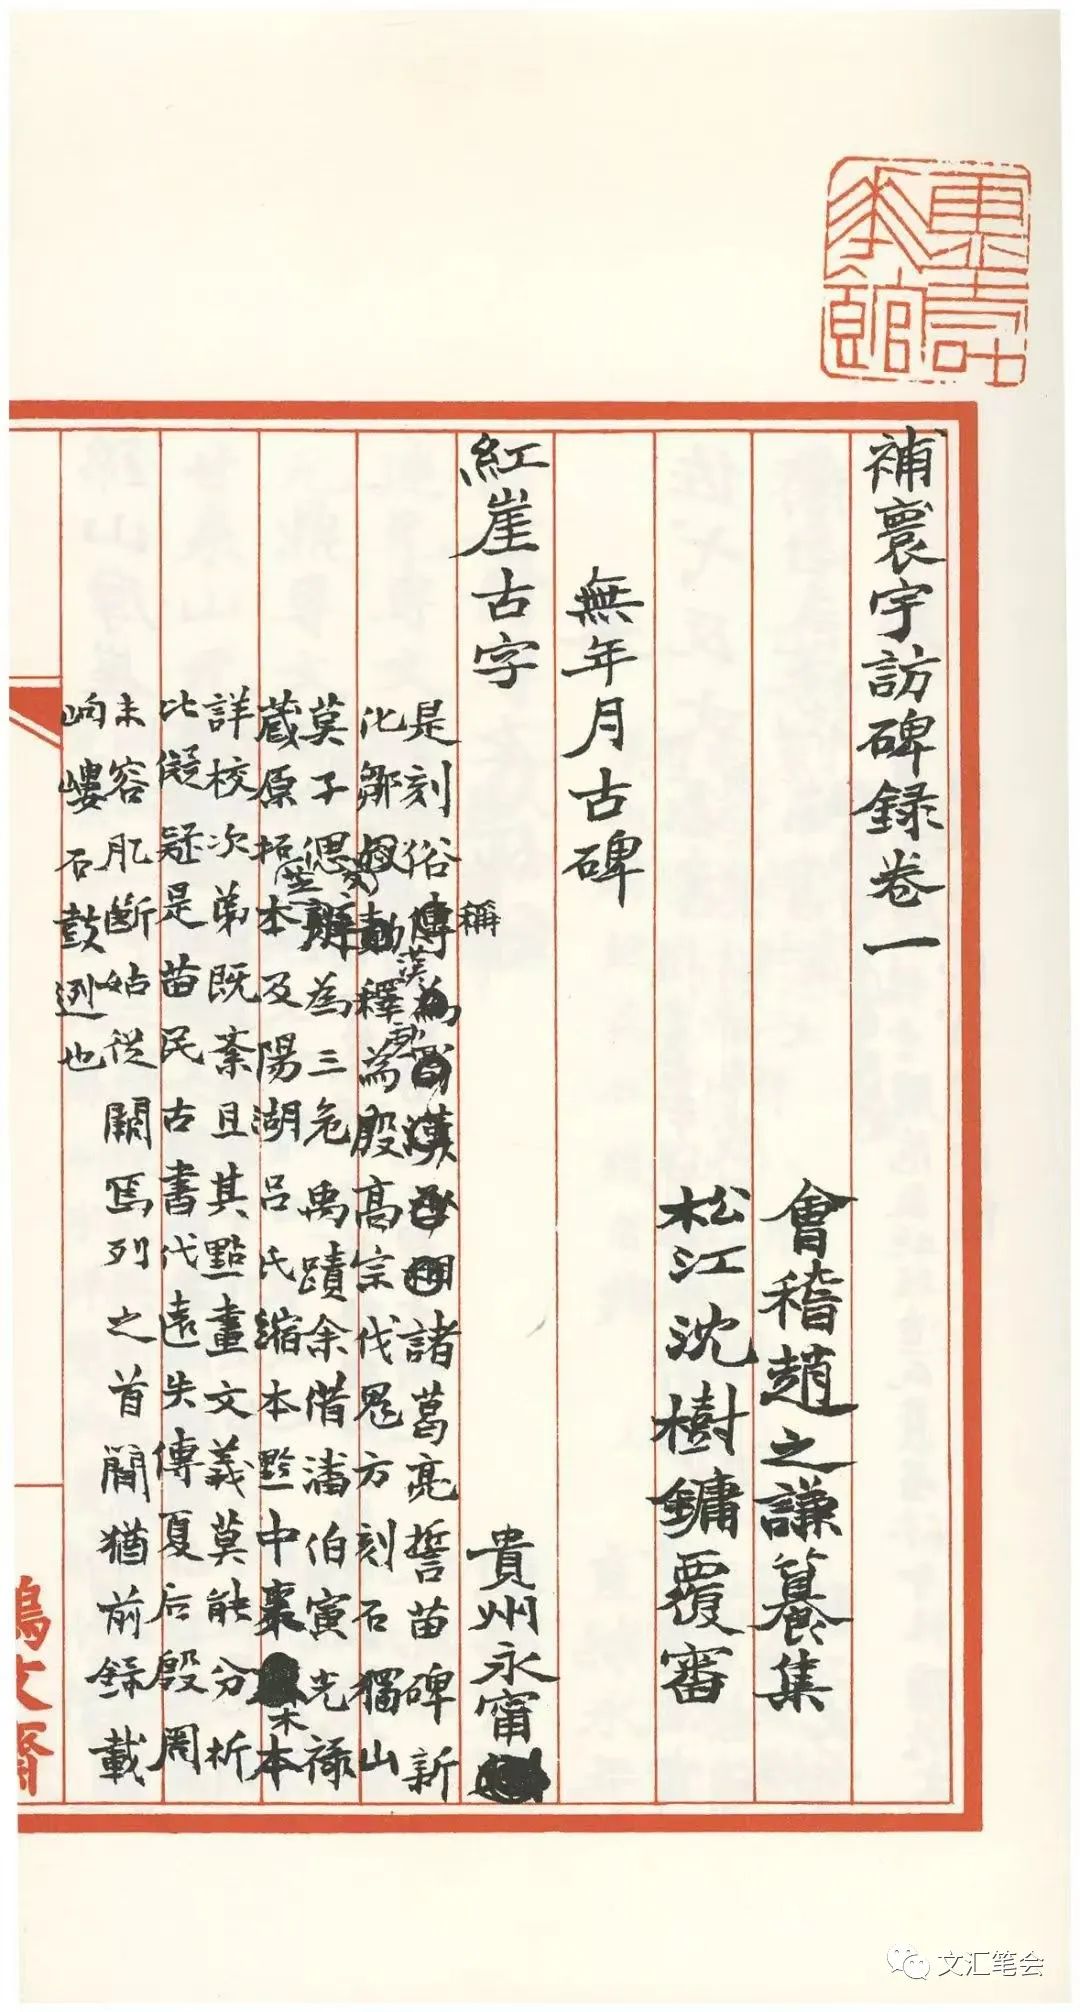 補寰宇訪碑錄卷一
會稽趙之謙纂集
松江沈樹鏞覆審
無年月古碑
紅崖古字 貴州永甯
是刻俗稱諸葛亮誓苗碑新
化鄒漢勛釋為殷高宗伐鬼方刻石獨山
莫子偲友芝辨為三危禹蹟余借潘伯寅光祿
藏原拓本及陽湖呂氏縮本黔中棗木本
詳校次弟既紊且其點畫文義莫能分析
比儗疑是苗民古書代遠失傳夏后殷周
未容肊斷姑從闕焉列之首簡猶前錄載
岣嶁石鼓迾也
文齋
文汇笔会